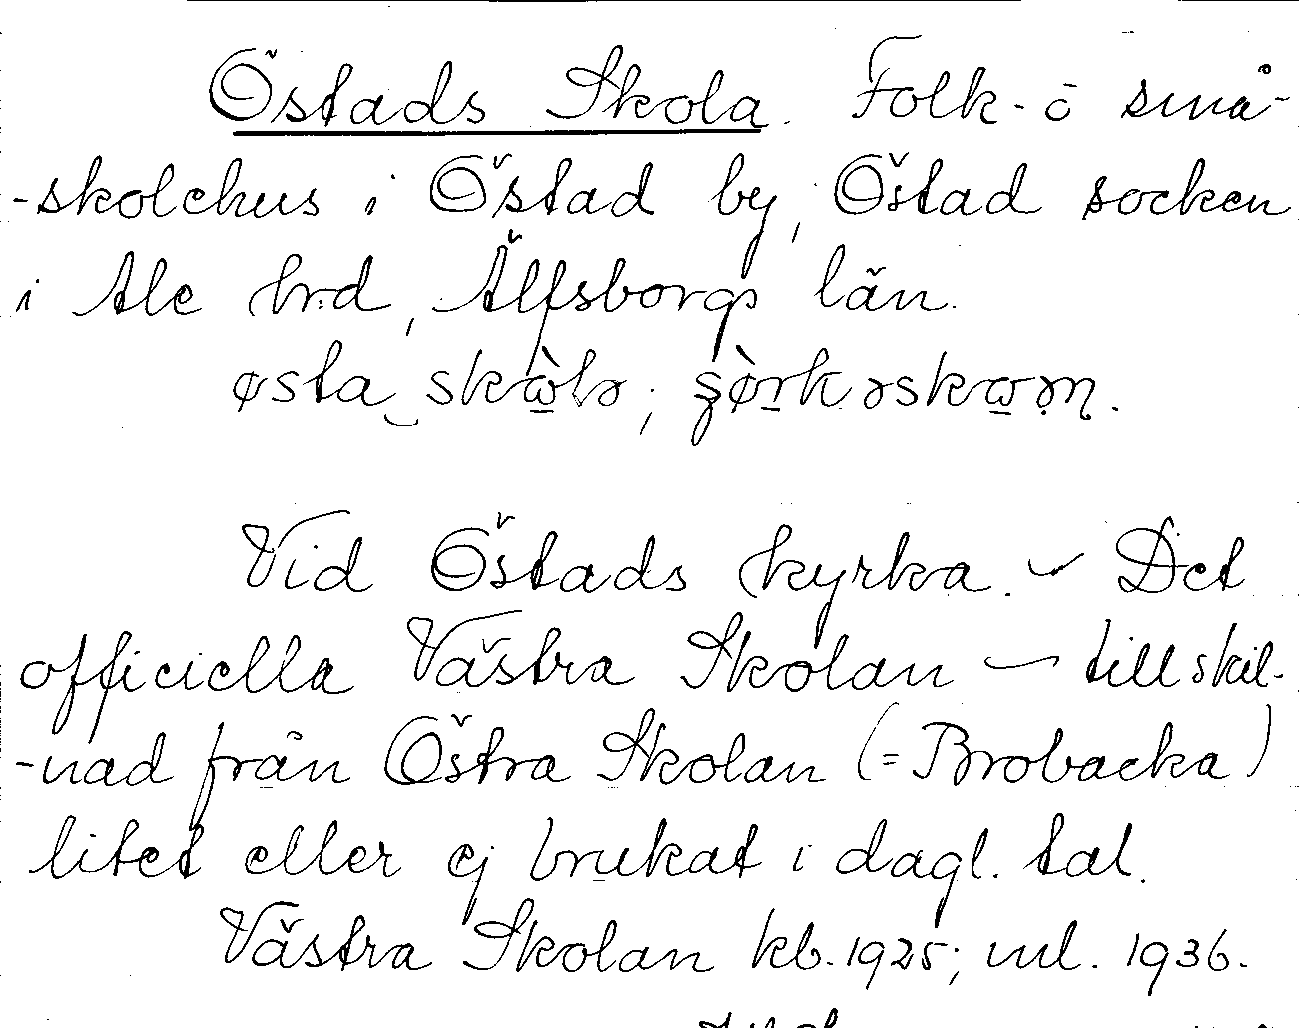 Östads Skola. Folk- o små-
-skolehus i Östad by, Östad socken
i Ale hrd, Älfsborgs län.
Vid Östads kyrka. Det
officiella Västra Skolan — till skil-
-nad från Östra Skolan (= Brobacka)
litet eller ej brukat i dagl. tal.
Västra Skolan kb. 1925; ml. 1936.